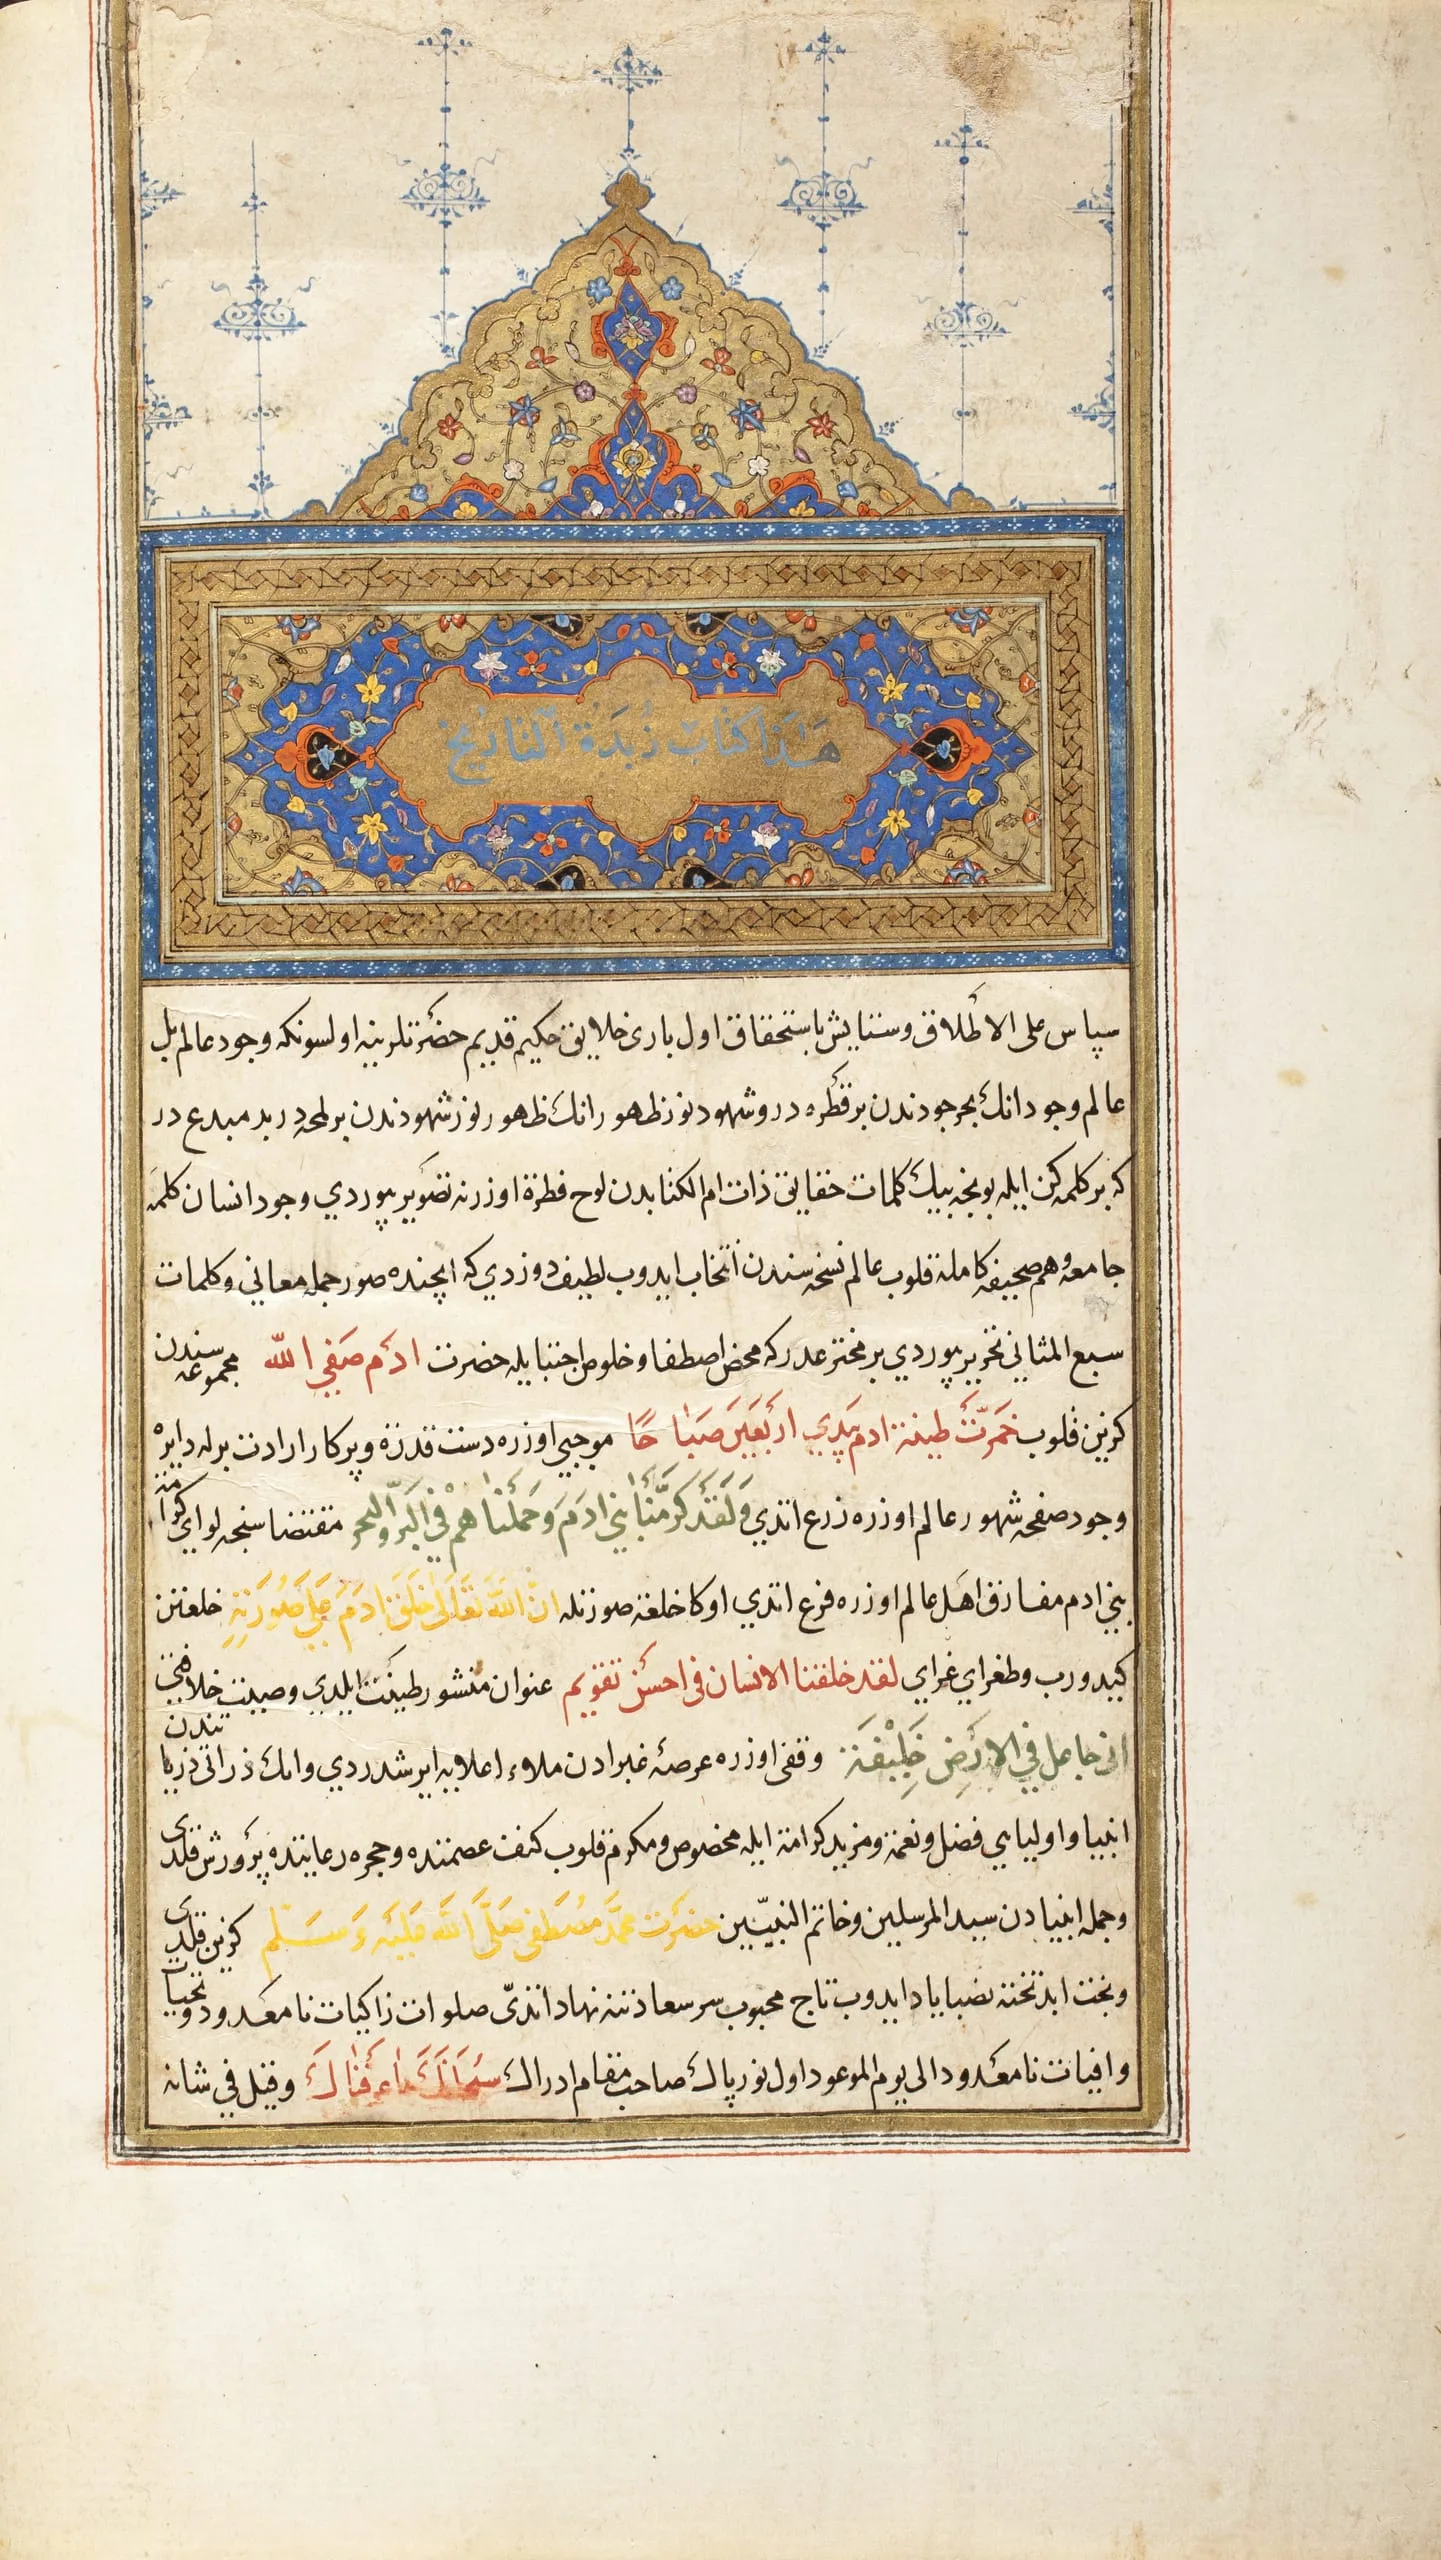 هٰذَا كتابُ زُبدَةُ التاريخ
سپاس على الاطلاق وستايش باستحقاق اول بارئ خلايق حكيم قديم حضرتلرينه اولسونكه وجود عالم بل
عالم وجود انك بحر جودندن بر قطره در وشهود نور ظهور انك ظهور نور شهودندن بر لمحه در بر مبدع در
كه بر كلمه كن ايله بونجه بيك كلمات حقايق ذات ام الكتابدن لوح فطرة اوزرنه تصوير بيوردي وجود انسان كلمه
جامعه وهم صحيفه كامله قلوب عالم نسخه سندن انتخاب ايدوب لطيف دوزدي كه ايچنده صور جمله معاني وكلمات
سبع المثاني تحرير بيوردي بر مخترعدر كه محض اصطفا وخلوص اجتبا يله حضرت ادم صفي الله مجموعه سندن
كزين قلوب خمرت طينة ادم بيدي اربعين صباحًا موجبي اوزره دست قدرة وپركار ارادت برله دايره
وجود صفحه شهور عالم اوزره زرع اتدي وَلَقَد كرّمنا بني ادمَ وَحملناهم في البرّ والبحر مقتضاسنجه لواي كرامت
بني ادم مفارق اهل عالم اوزره فرع اتدي اوكا خلعة صورتله انّ اللهَ تعَالى خلقَ ادمَ على صُورَتِهِ خلعتن
كيدورب وطغراي غراي لقد خلقنا الانسان في احسن تقويم عنوان منشور طينت ايلدي وصيت خلافتي
اني جاعل في الارض خَلِيفَة وقفي اوزره عرصۀ غبرادن ملاء اعلايه ايرشدردي وانك ذراتي ذرياتندن
انبيا واوليايي فضل ونعمة ومزيد كرامة ايله مخصوص ومكرم قلوب كنف عصمتنده وحجره رعايتنده پرورش قلدى
وجمله انبيادن سيد المرسلين وخاتم النبيّين حضرت محمّد مصطفى صَلّى الله عَلَيه وَسَلم كزين قلدى
وتخت ابد تختنه نصبا ياد ايدوب تاج محبوب سر سعادتنه نهاد اتدىّ صلوات زاكيات نامعدود وتحيات
وافيات نامعدود الى يوم الموعود اول نور پاك صاحب مقام ادراك سُبحَانَكَ ماعرفناكَ وقيل في شانه